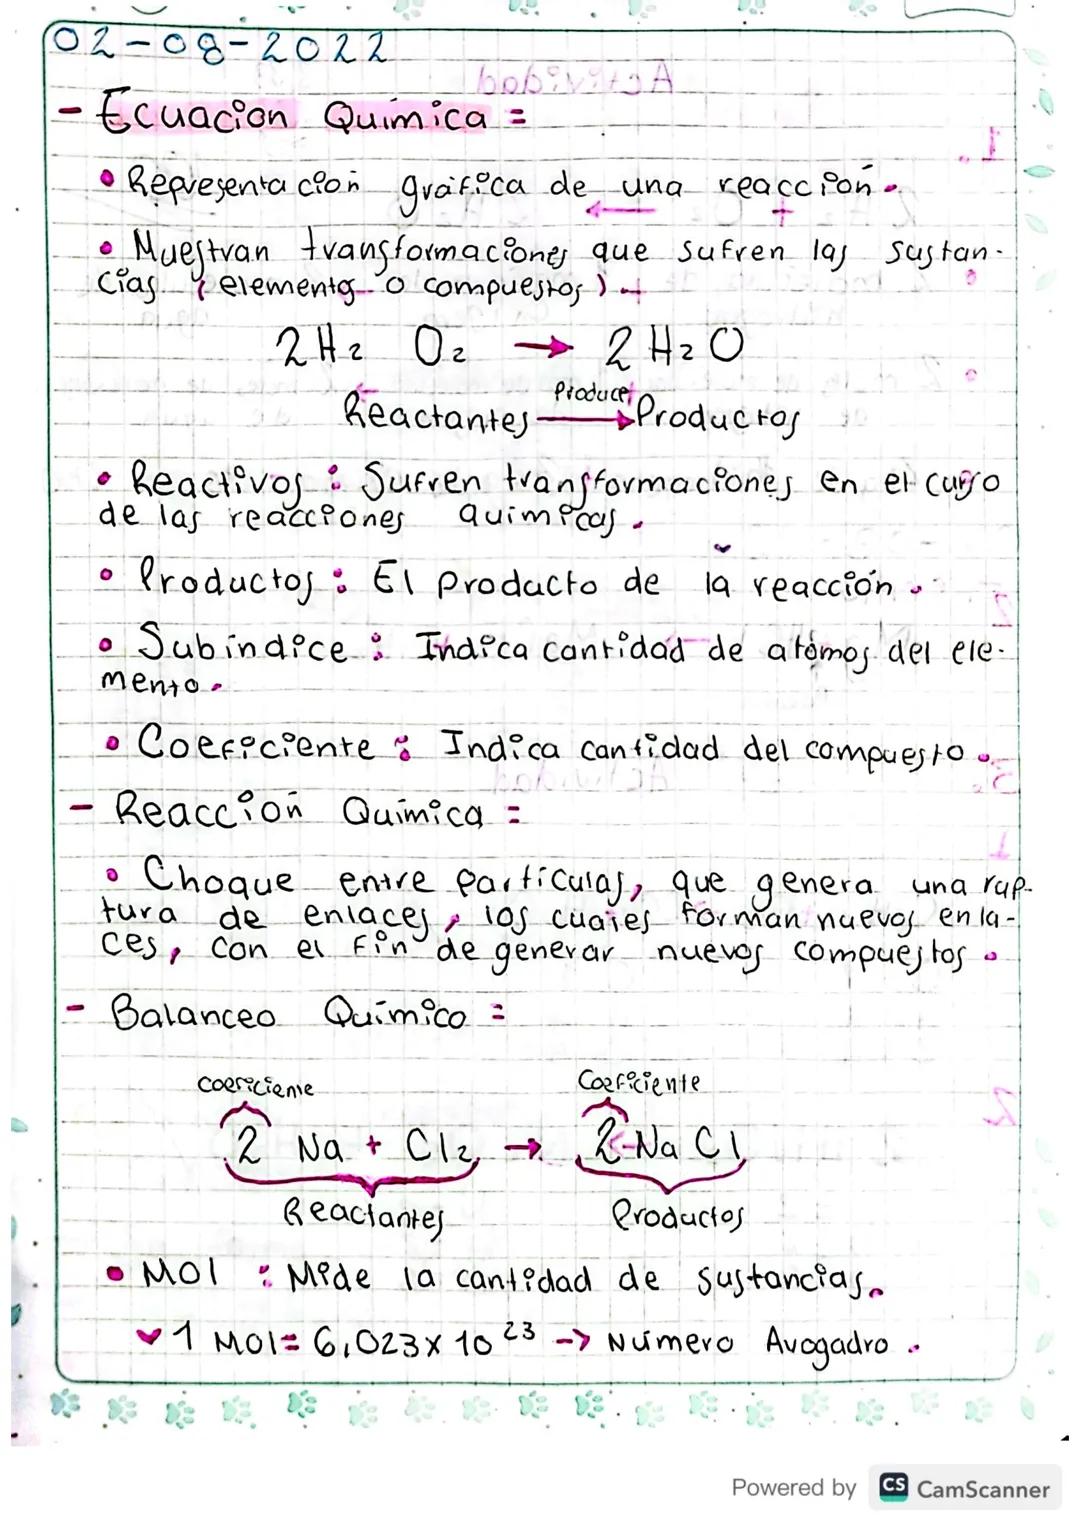 02-08-2022
- Ecuación Química =
• Representación gráfica de una reacción.
• Muestran transformaciones que sufren las sustan-
cias (elementos o compuestos).
2H2 O2 → 2H2O
Produce
Reactantes → Productos
• Reactivos: Sufren transformaciones en el curso
de las reacciones químicas.
• Productos: El producto de la reacción.
• Subíndice: Indica cantidad de atómos del ele-
mento.
• Coeficiente: Indica cantidad del compuesto.
- Reacción Química =
• Choque entre partículas, que genera una rup-
tura de enlaces, los cuales forman nuevos enla-
ces, con el fin de generar nuevos compuestos.
- Balanceo Químico =
Coeficiente Coeficiente
2 Na + Cl2 → 2 NaCl
Reactantes Productos
• Mol: Mide la cantidad de sustancias.
1 Mol = 6,023x10 23 -> Número Avogadro.
Powered by CS CamScanner